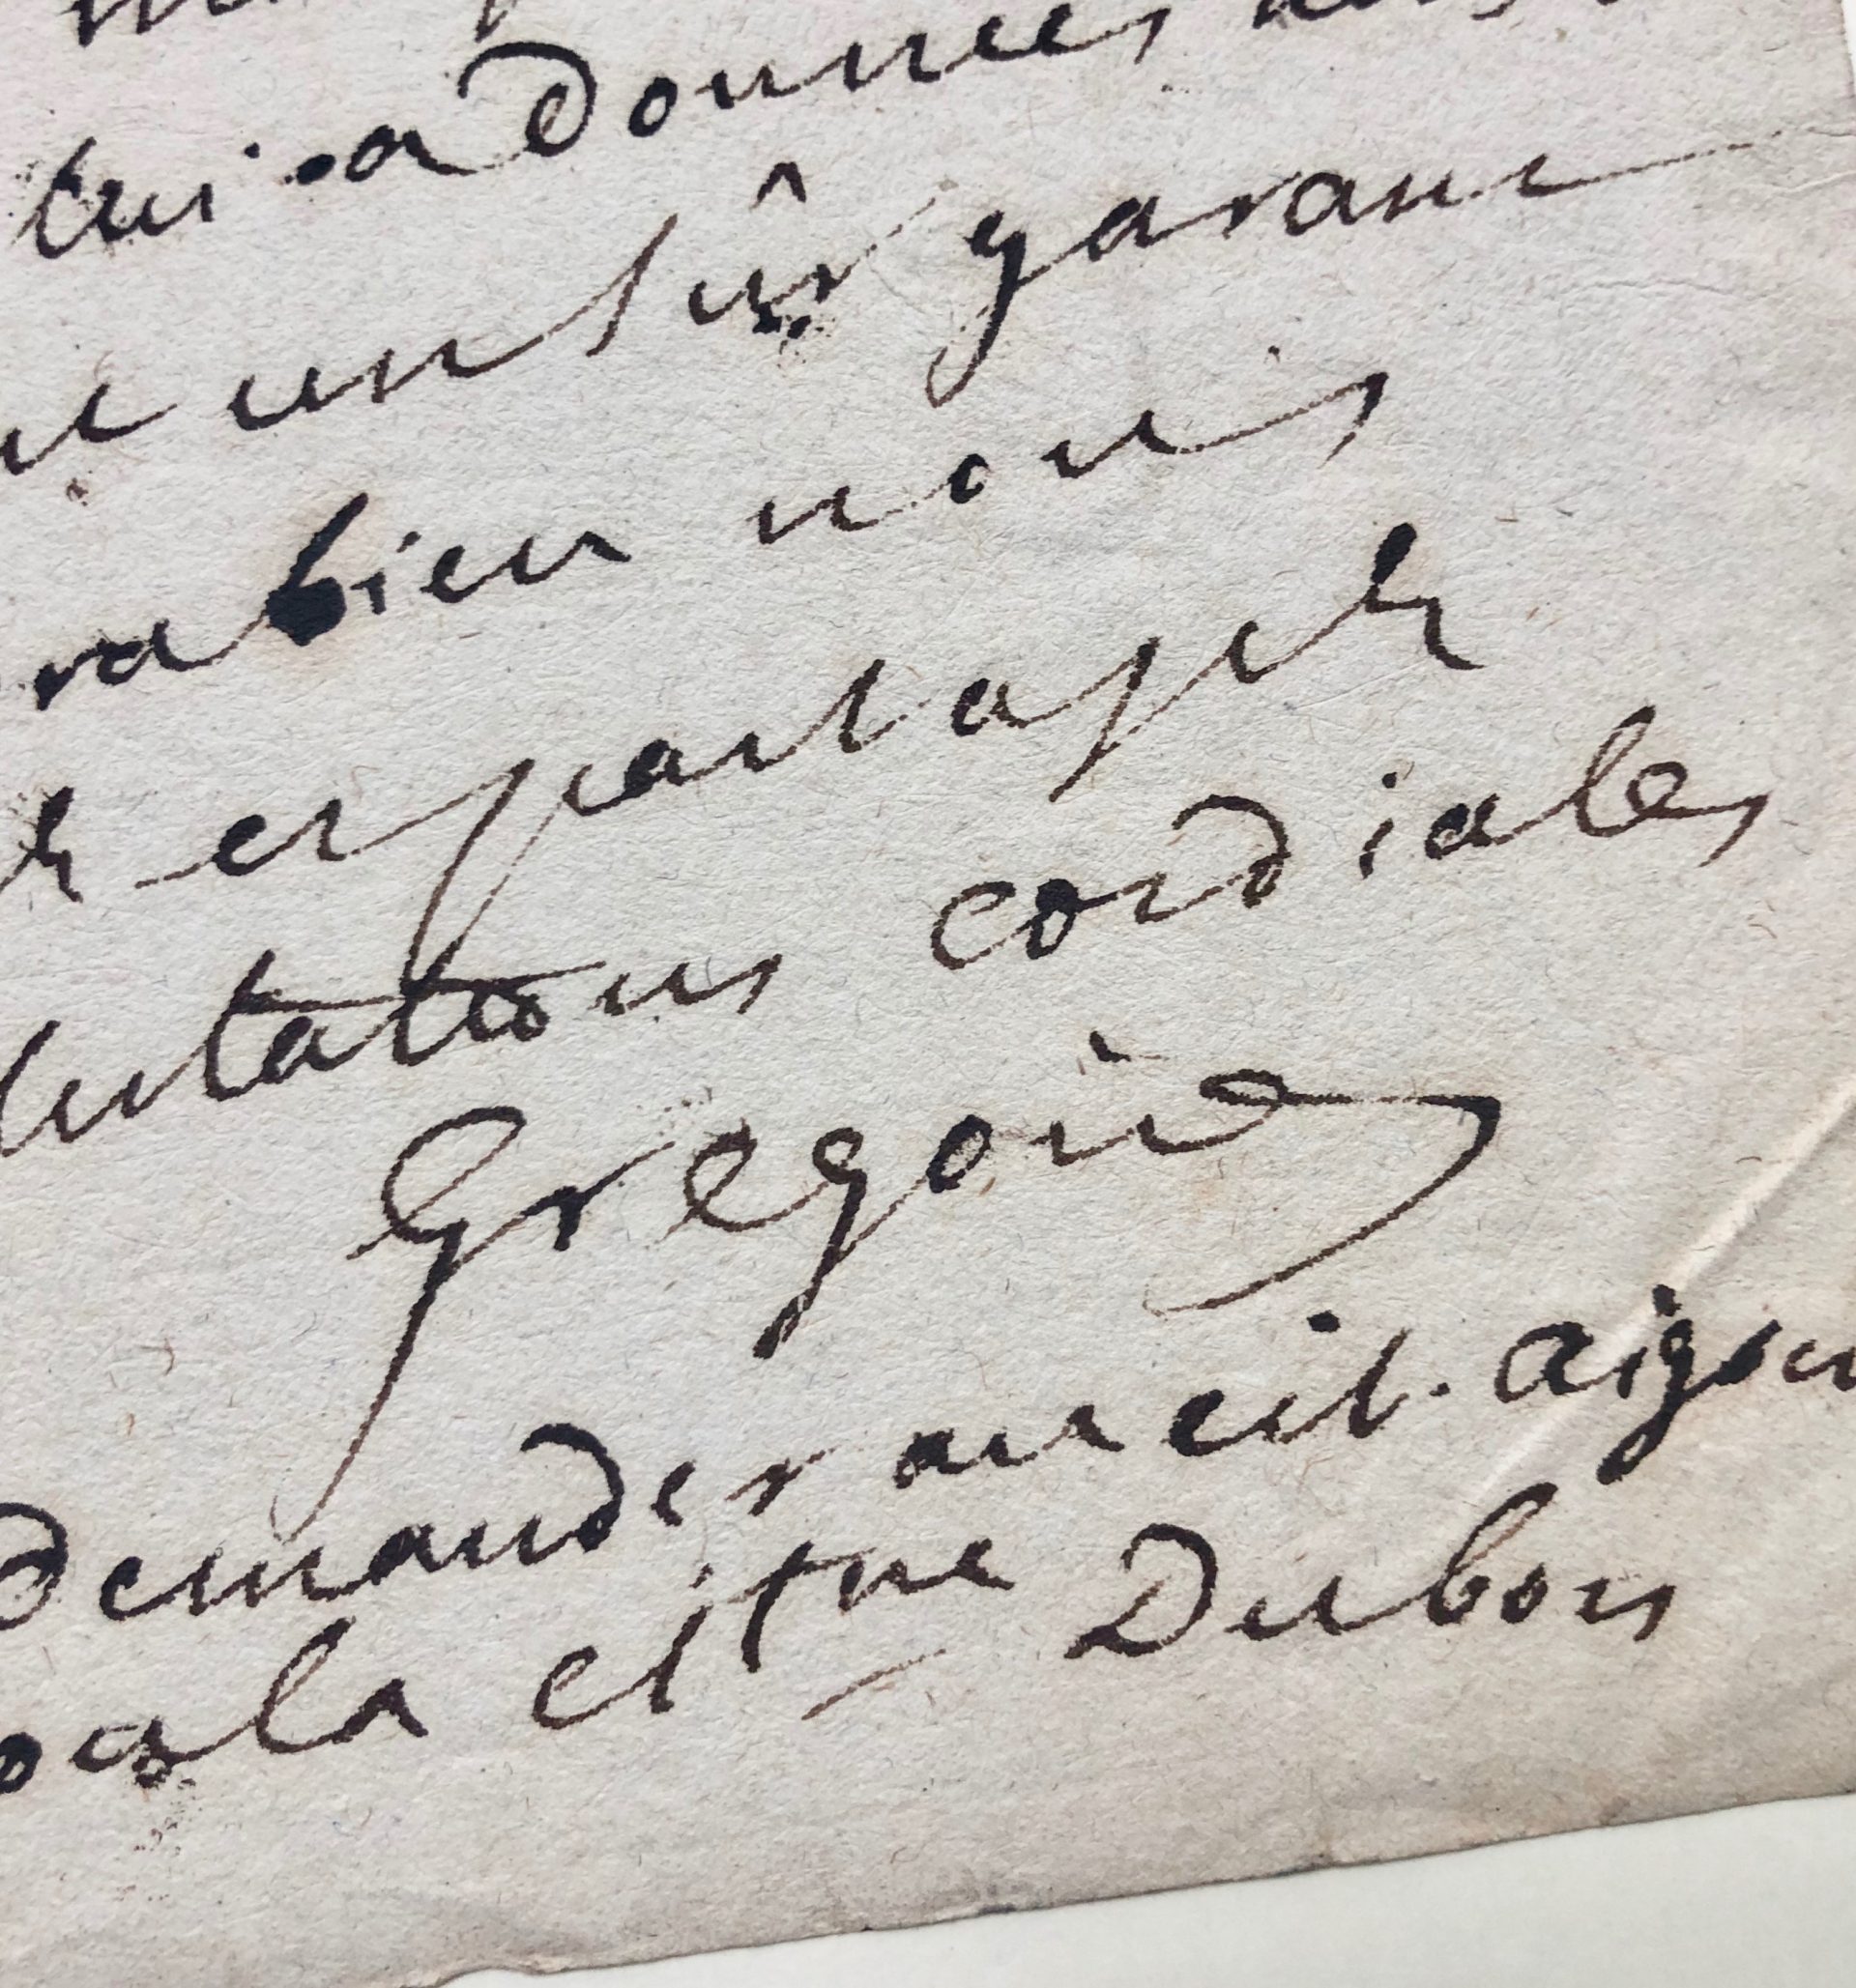 lui a données
un sûr garant
ra bien nous
er partager
lutations cordiales
Gregoire
demander au cit. aigoin
la citne Dubois